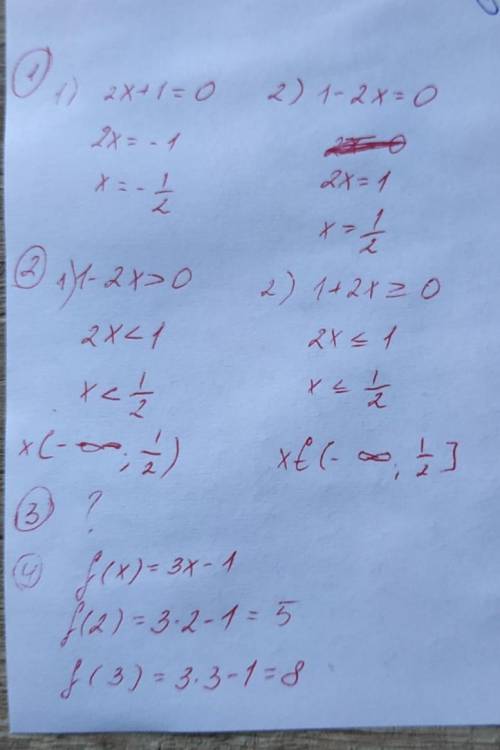 1
1) 2x+1=0
2x=-1
x=-1/2
2) 1-2x=0
2x=1
x=1/2
2
1) 1-2x>0
2x<1
x<1/2
x(-∞;1/2)
2) 1+2x≥0
2x≤1
x≤1/2
x∈(-∞;1/2]
3 ?
4 f(x)=3x-1
f(2)=3·2-1=5
f(3)=3·3-1=8